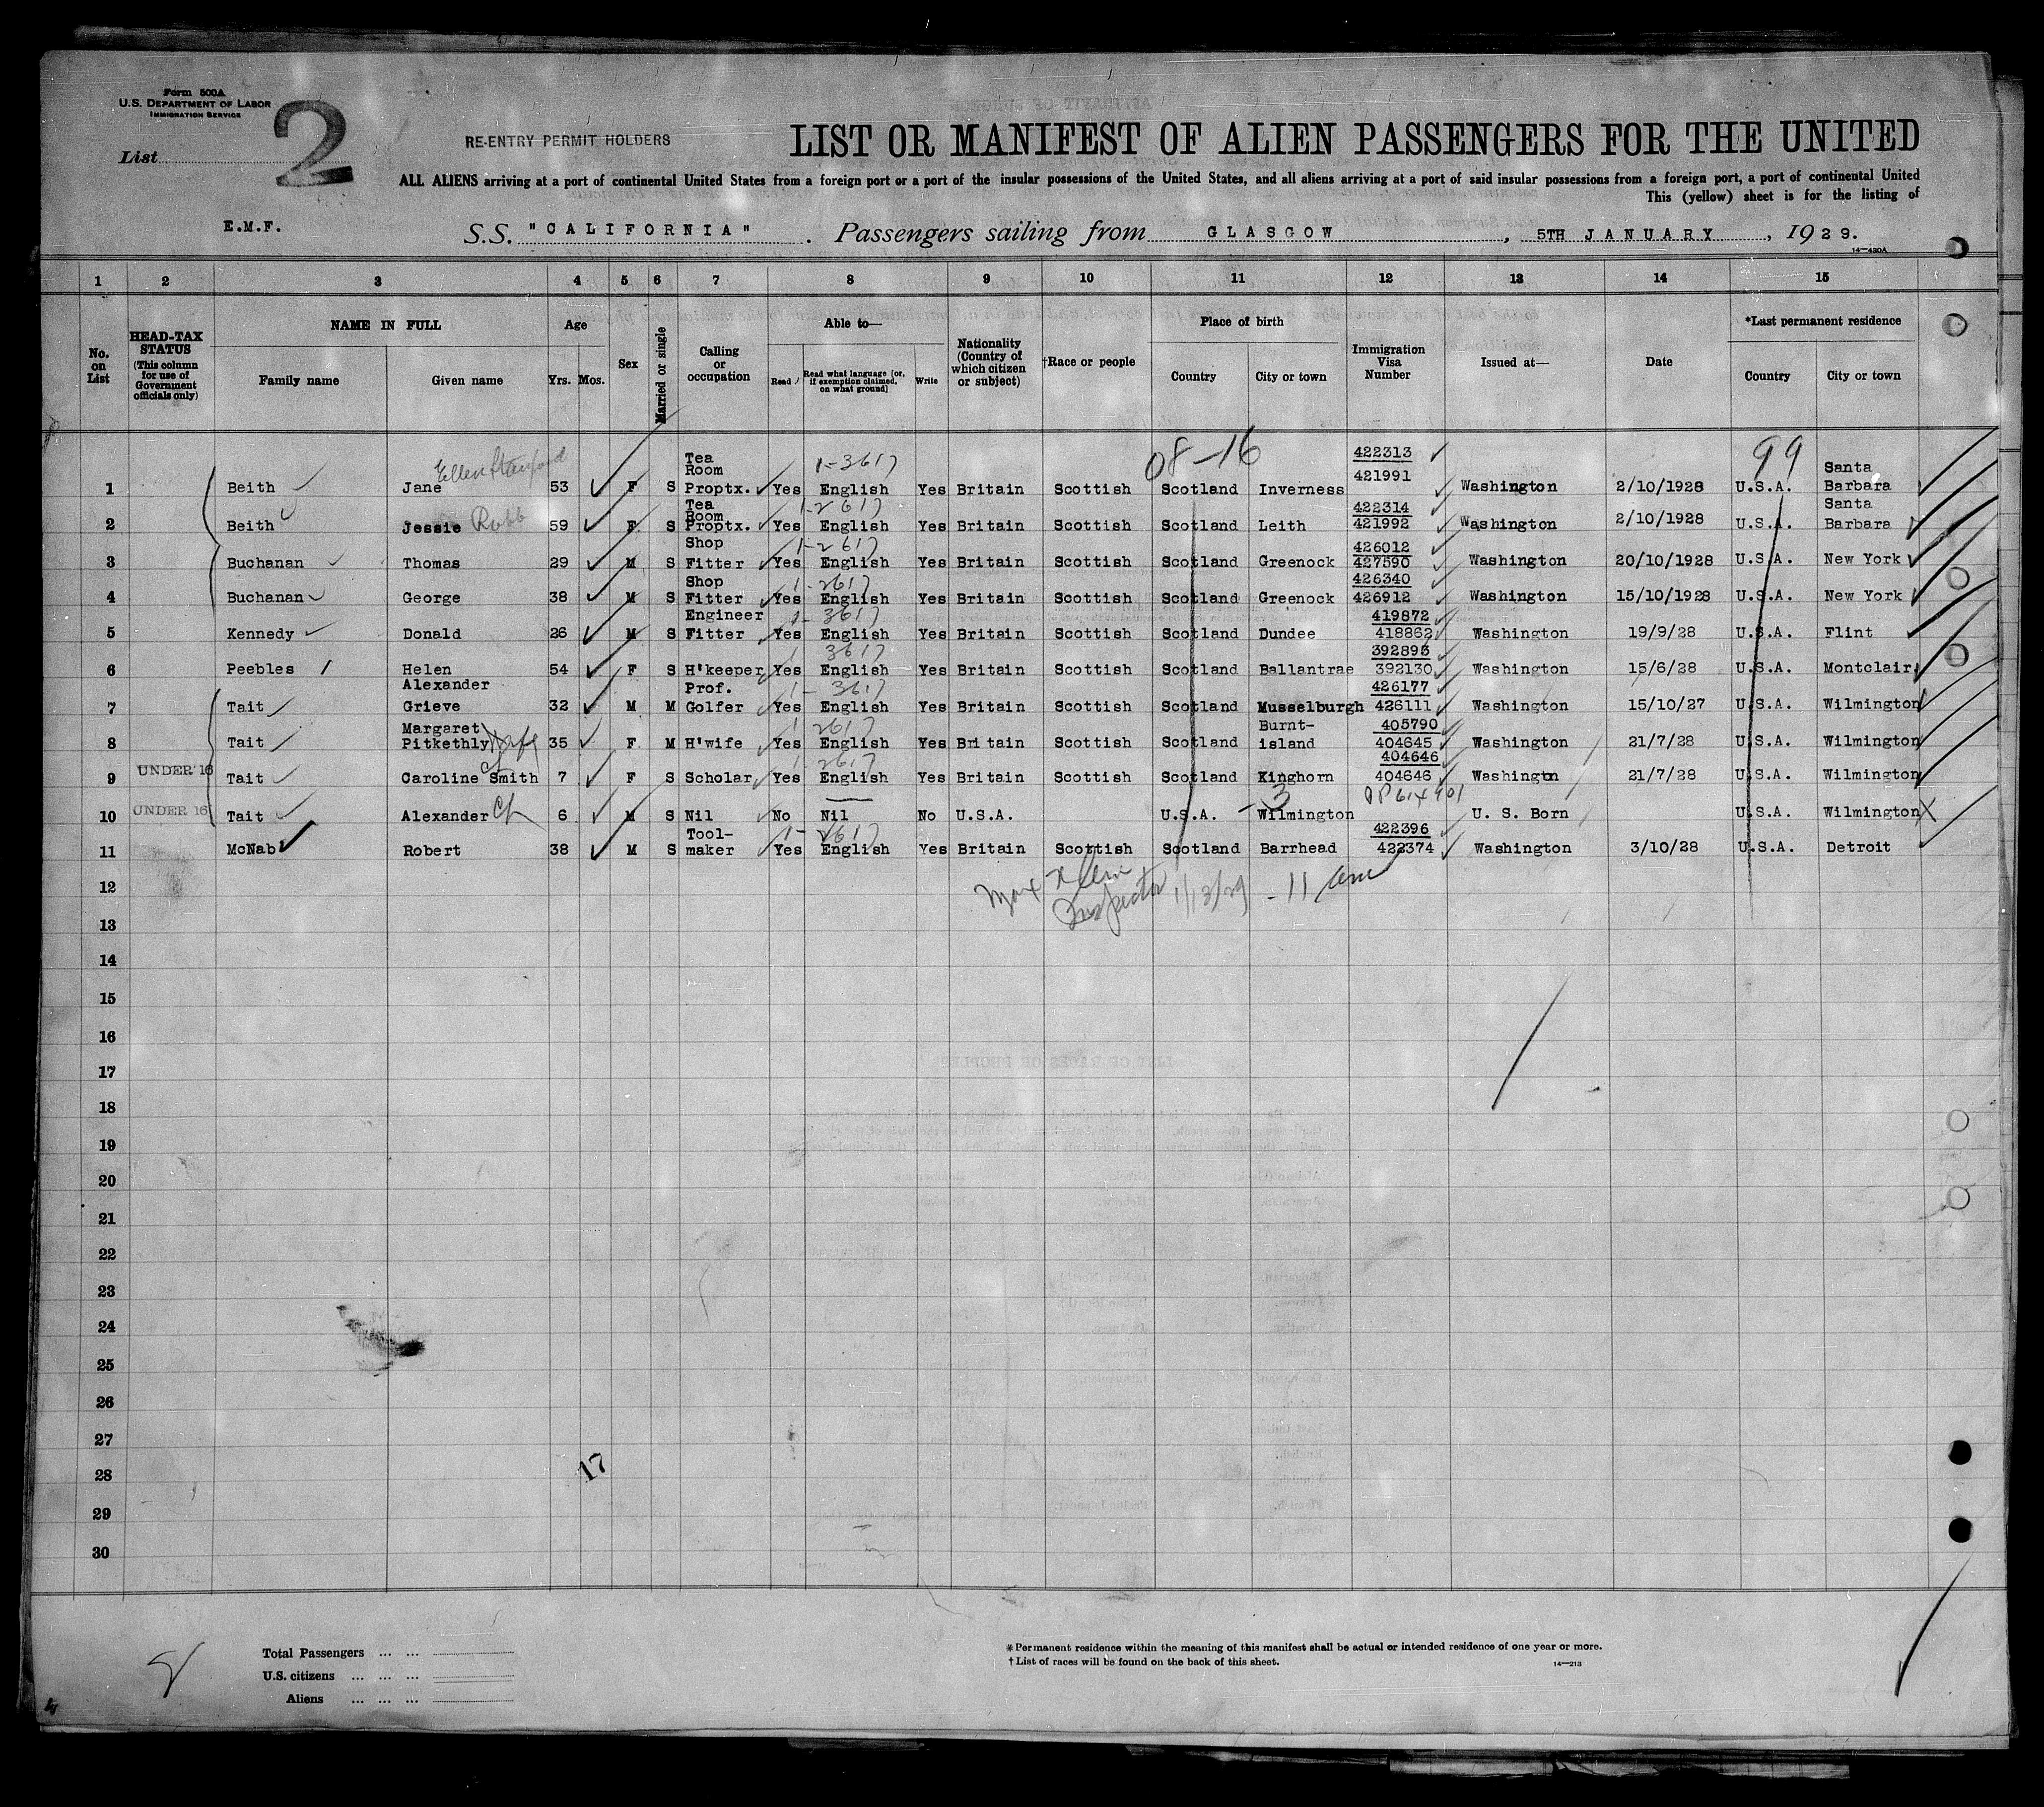 Form 500A
U.S. DEPARTMENT OF LABOR
IMMIGRATION SERVICE
List 2
RE-ENTRY PERMIT HOLDERS
LIST OR MANIFEST OF ALIEN PASSENGERS FOR THE UNITED
ALL ALIENS arriving at a port of continental United States from a foreign port or a port of the insular possessions of the United States, and all aliens arriving at a port of said insular possessions from a foreign port, a port of continental United
This (yellow) sheet is for the listing of
E.M.F.
S.S. "CALIFORNIA". Passengers sailing from GLASGOW, 5TH JANUARY, 1929.
14—430A
1 2 3 4 5 6 7 8 9 10 11 12 13 14 15
No. on List
HEAD-TAX STATUS (This column for use of Government officials only)
NAME IN FULL
Family name Given name
Age
Yrs. Mos.
Sex
Married or single
Calling or occupation
Able to—
Read Read what language [or, if exemption claimed, on what ground] Write
Nationality (Country of which citizen or subject)
†Race or people
Place of birth
Country City or town
Immigration Visa Number
Issued at—
Date
*Last permanent residence
Country City or town
08-16 99
Ellen Stanford Tea Room 1-3617 422313 Santa
1 Beith Jane 53 F S Proptx. Yes English Yes Britain Scottish Scotland Inverness 421991 Washington 2/10/1928 U.S.A. Barbara
Tea Room 1-2617 422314 Santa
2 Beith Jessie Robb 59 F S Proptx. Yes English Yes Britain Scottish Scotland Leith 421992 Washington 2/10/1928 U.S.A. Barbara
Shop 1-2617 426012
3 Buchanan Thomas 29 M S Fitter Yes English Yes Britain Scottish Scotland Greenock 427590 Washington 20/10/1928 U.S.A. New York
Shop 1-2617 426340
4 Buchanan George 38 M S Fitter Yes English Yes Britain Scottish Scotland Greenock 426912 Washington 15/10/1928 U.S.A. New York
Engineer 1-3617 419872
5 Kennedy Donald 26 M S Fitter Yes English Yes Britain Scottish Scotland Dundee 418862 Washington 19/9/28 U.S.A. Flint
1 3617 392893
6 Peebles Helen 54 F S H'keeper Yes English Yes Britain Scottish Scotland Ballantrae 392130 Washington 15/6/28 U.S.A. Montclair
Alexander Prof. 1-3617 426177
7 Tait Grieve 32 M M Golfer Yes English Yes Britain Scottish Scotland Musselburgh 426111 Washington 15/10/27 U.S.A. Wilmington
Margaret 1 2617 Burnt- 405790
8 Tait Pitkethly wife 35 F M H'wife Yes English Yes Britain Scottish Scotland island 404645 Washington 21/7/28 U.S.A. Wilmington
UNDER 16 ch 1-2617 404646
9 Tait Caroline Smith 7 F S Scholar Yes English Yes Britain Scottish Scotland Kinghorn 404646 Washingtn 21/7/28 U.S.A. Wilmington
UNDER 16 — -3
10 Tait Alexander ch 6 M S Nil No Nil No U.S.A. U.S.A. Wilmington U. S. Born U.S.A. Wilmington X
Tool- 1-2617 422396
11 McNab Robert 38 M S maker Yes English Yes Britain Scottish Scotland Barrhead 422374 Washington 3/10/28 U.S.A. Detroit
12 Max Klein
Inspector 1/13/29 - 11 am
13
14
15
16
17
18
19
20
21
22
23
24
25
26
27
28 17
29
30
Total Passengers ... ...
U.S. citizens ... ... ...
Aliens ... ... ...
*Permanent residence within the meaning of this manifest shall be actual or intended residence of one year or more.
†List of races will be found on the back of this sheet.
14—213